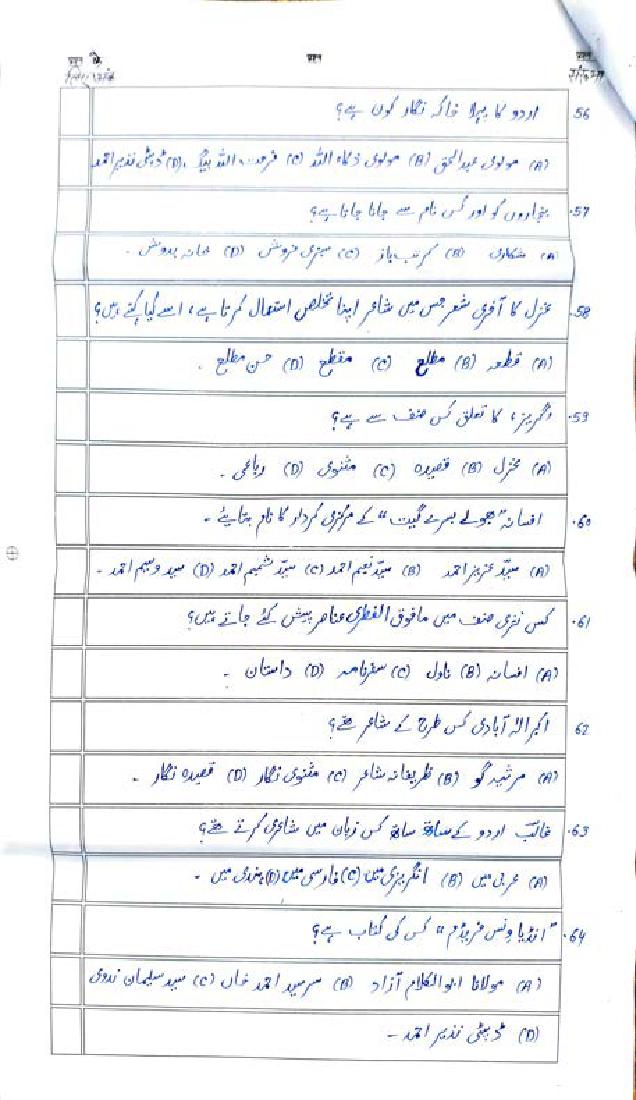 प्रश्न क्रं. प्रश्न
56 اردو کا پہلا خاکہ نگار کون ہے؟
(A) مولوی عبدالحق (B) مولوی ذکاء اللہ (C) فرحت اللہ بیگ (D) ڈپٹی نذیر احمد
57. بنجاروں کو اور کس نام سے جانا جاتا ہے؟
(A) شکاری (B) کرتب باز (C) سبزی فروش (D) خانہ بدوش ۔
58. غزل کا آخری شعر جس میں شاعر اپنا تخلص استعمال کرتا ہے، اسے کیا کہتے ہیں؟
(A) قطعہ (B) مطلع (C) مقطع (D) حسن مطلع ۔
59. 'گریز' کا تعلق کس صنف سے ہے؟
(A) غزل (B) قصیدہ (C) مثنوی (D) رباعی ۔
60. افسانہ "بھولے بسرے گیت" کے مرکزی کردار کا نام بتایئے ۔
(A) سیّد عزیز احمد (B) سیّد نعیم احمد (C) سیّد شمیم احمد (D) سید وسیم احمد ۔
61. کس نثری صنف میں مافوق الفطری عناصر پیش کئے جاتے ہیں؟
(A) افسانہ (B) ناول (C) سفرنامہ (D) داستان ۔
62 اکبر الہ آبادی کس طرح کے شاعر تھے؟
(A) مرثیہ گو (B) ظریفانہ شاعر (C) مثنوی نگار (D) قصیدہ نگار ۔
63. غالب اردو کے ساتھ ساتھ کس زبان میں شاعری کرتے تھے؟
(A) عربی میں (B) انگریزی میں (C) فارسی میں (D) ہندی میں ۔
64. "انڈیا ونس فریڈم" کس کی کتاب ہے؟
(A) مولانا ابوالکلام آزاد (B) سرسید احمد خاں (C) سید سلیمان ندوی
(D) ڈپٹی نذیر احمد ۔